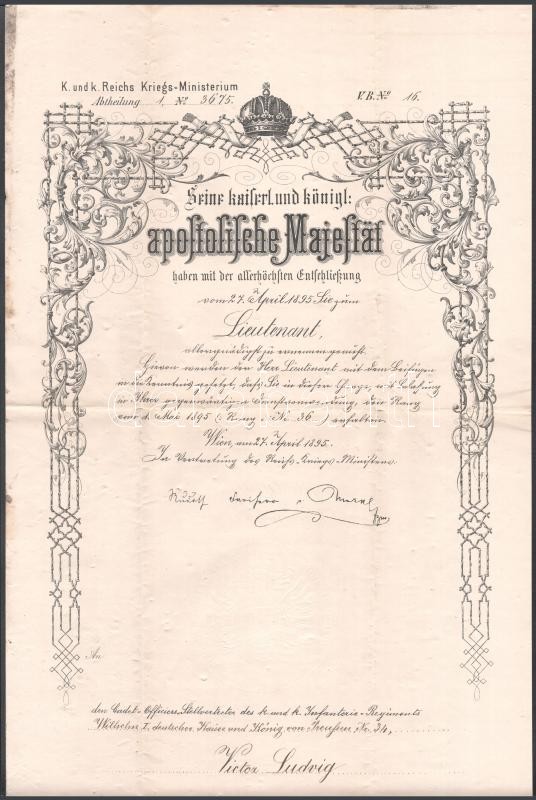 K. und k. Reichs Kriegs-Ministerium
Abtheilung 1, No 3675.
V. B. No 16.
Seine kaiserl. und königl:
apostolische Majestät
haben mit der allerhöchsten Entschließung
vom 27. April 1895 Sie zum
Lieutenant,
allergnädigst zu ernennen geruht.
Hievon werden der Herr Lieutenant mit dem Beifügen
in die Kenntnis gesetzt, daß Sie in dieser Charge, mit Belassung
in Ihrer gegenwärtigen Dienstverwendung, den Rang
vom 1. Mai 1895 (Rang No 36) erhalten.
Wien, am 27. April 1895.
In Vertretung des Reichs-Kriegs-Ministers:
Freiherr v.
An
den Cadet-Officiers-Stellvertreter des k. und k. Infanterie-Regiments
Wilhelm I., deutscher Kaiser und König von Preußen, No. 34,
Victor Ludvig